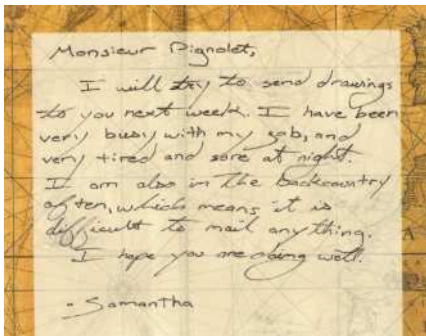 Monsieur Pignolet,
I will try to send drawings
to you next week. I have been
very busy with my job, and
very tired and sore at night.
I am also in the backcountry
often, which means it is
difficult to mail anything.
I hope you are doing well.
- Samantha